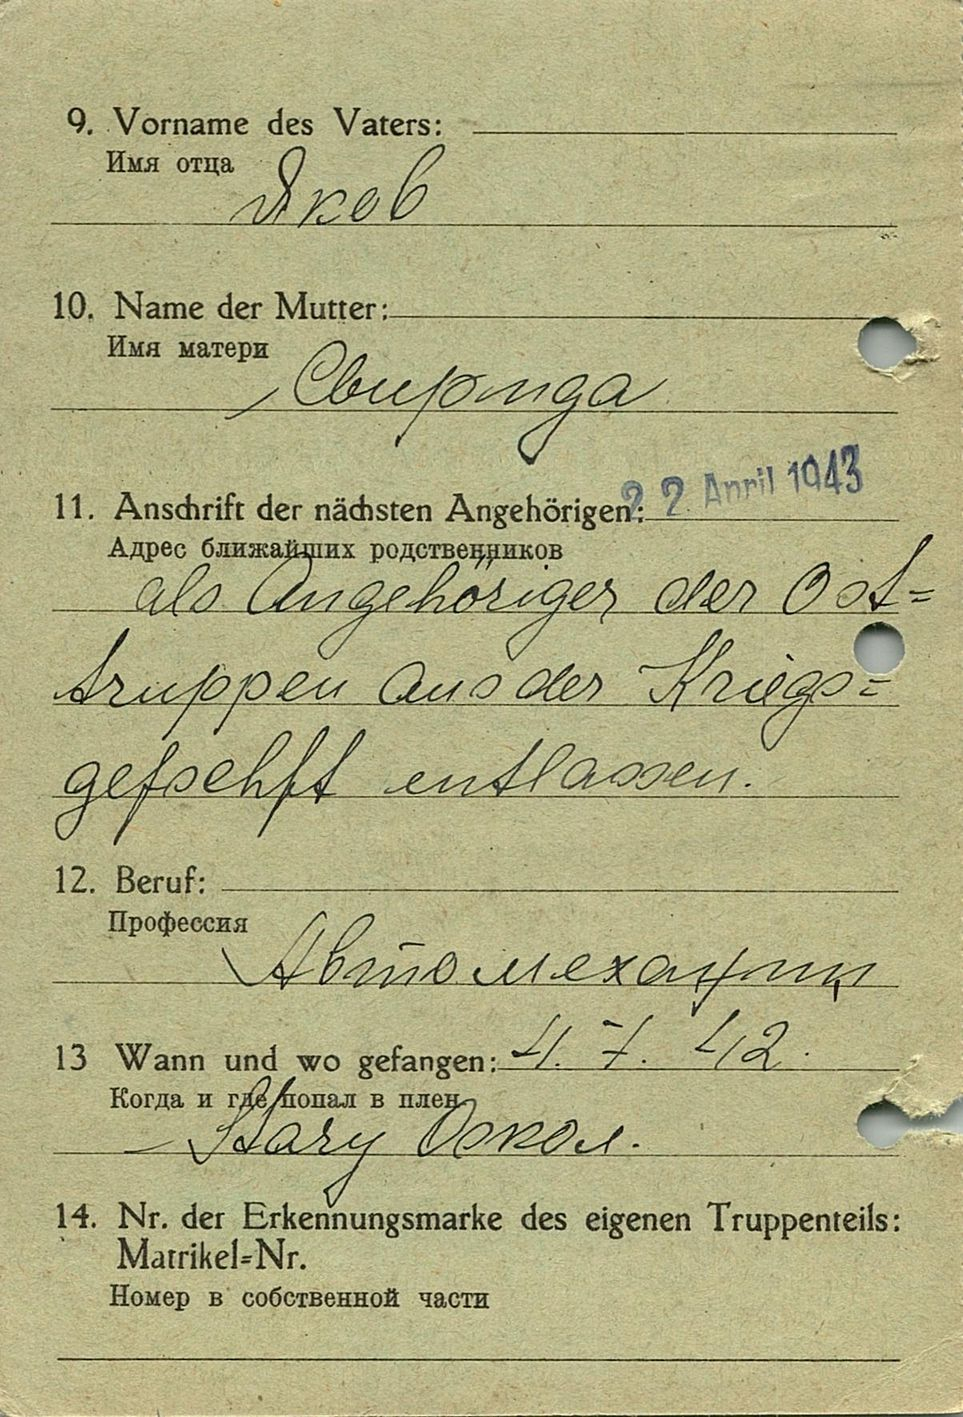 9. Vorname des Vaters:
Имя отца
Яков
10. Name der Mutter:
Имя матери
Свирида
22 April 1943
11. Anschrift der nächsten Angehörigen:
Адрес ближайших родственников
als Angehöriger der Ost=
truppen aus der Kriegs=
gefschft entlassen.
12. Beruf:
Профессия
Автомеханик
13 Wann und wo gefangen: 4. 7. 42.
Когда и где попал в плен
Stary Оскол.
14. Nr. der Erkennungsmarke des eigenen Truppenteils:
Matrikel=Nr.
Номер в собственной части